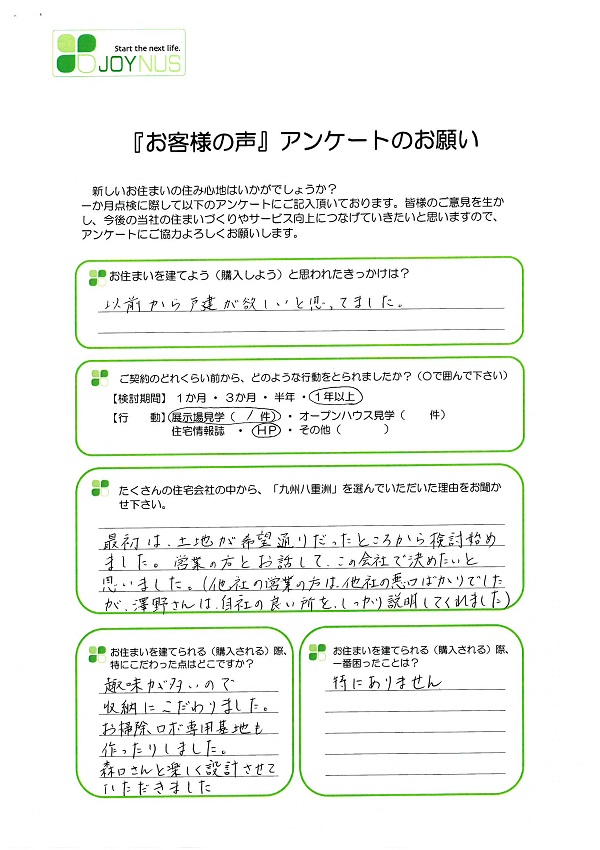 Start the next life.
JOYNUS
『お客様の声』アンケートのお願い
新しいお住まいの住み心地はいかがでしょうか？
一か月点検に際して以下のアンケートにご記入頂いております。皆様のご意見を生か
し、今後の当社の住まいづくりやサービス向上につなげていきたいと思いますので、
アンケートにご協力よろしくお願いします。
お住まいを建てよう（購入しよう）と思われたきっかけは？
以前から戸建が欲しいと思ってました。
ご契約のどれくらい前から、どのような行動をとられましたか？（〇で囲んで下さい）
【検討期間】 1か月 ・ 3か月 ・ 半年 ・ 1年以上
【行　　動】 展示場見学（ 1 件） ・ オープンハウス見学（　　件）
住宅情報誌 ・ HP ・ その他（　　　）
たくさんの住宅会社の中から、「九州八重洲」を選んでいただいた理由をお聞か
せ下さい。
最初は、土地が希望通りだったところから検討始め
ました。営業の方とお話して、この会社で決めたいと
思いました。（他社の営業の方は、他社の悪口ばかりでした
が、澤野さんは、自社の良い所を、しっかり説明してくれました）
お住まいを建てられる（購入される）際、
特にこだわった点はどこですか？
趣味が多いので
収納にこだわりました。
お掃除ロボ専用基地も
作ったりしました。
森口さんと楽しく設計させて
いただきました
お住まいを建てられる（購入される）際、
一番困ったことは？
特にありません